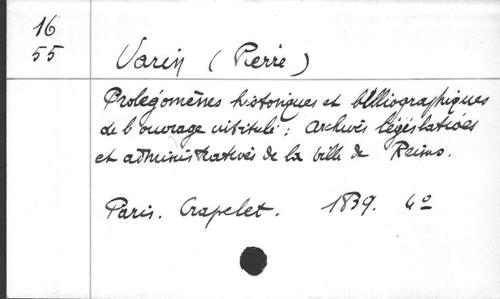 16
55
Varin (Pierre)
Prolégomènes historiques et bibliographiques
de l'ouvrage intitulé: Archives législatives
et administratives de la ville de Reims.
Paris. Crapelet. 1839. 4o